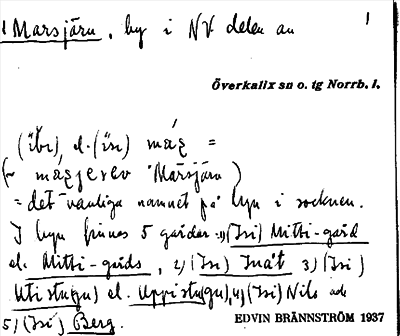 1 Marsjärv, by i NV delen av
1
Överkalix sn o. tg Norrb. l.
(i br) el. (isı)
"Marsjärv")
= det vanliga namnet på byn i socknen.
I byn finnes 5 gårdar: 1) (Isı) Mitti-gård
el. Mitti-gårds, 2) (Isı) Inåt 3) (Isı)
Utistu(gu) el. Uppistu(gu), 4) (Isı) Nils och
5) (Isı) Berg.
EDVIN BRÄNNSTRÖM 1937